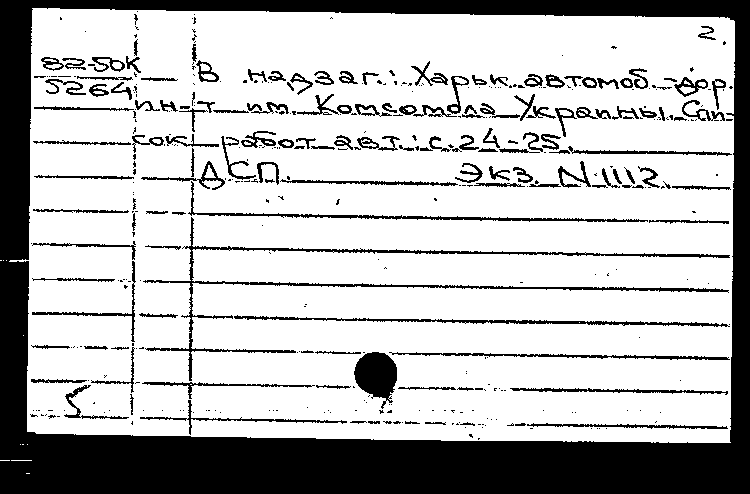 2.
82-50К
5264
В надзаг.: Харьк. автомоб.-дор.
ин-т им. Комсомола Украины. Спи-
сок работ авт.: с.24-25.
ДСП. Экз. N 1112.
5